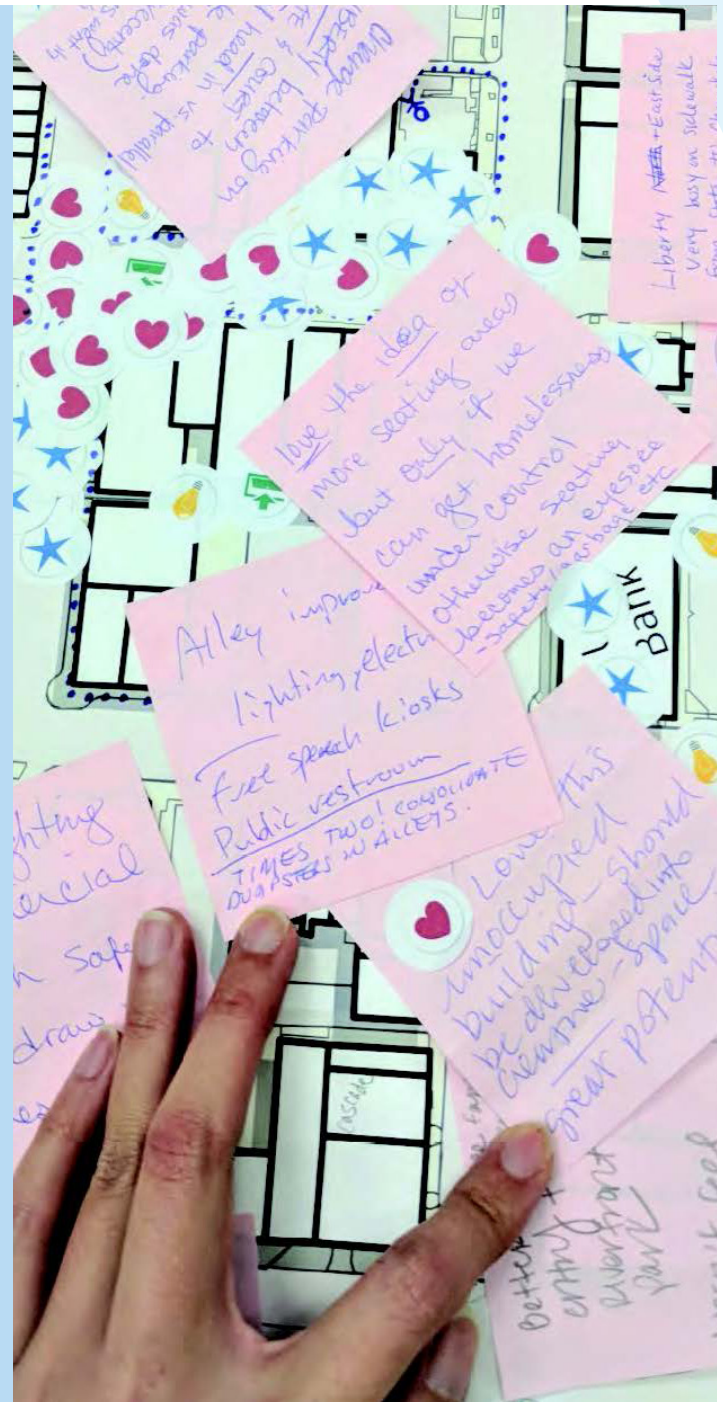 Change Parking on
Liberty between
& courts to
head in vs. parallel
parking.
was done
recently)
Liberty + East side
Very busy on sidewalk
love the idea of
more seating areas
but only if we
can get homelessness
under control
otherwise seating
becomes an eyesore
- safety/garbage etc
Bank
Alley
lighting, electri
free speech kiosks
Public restroom
TIMES TWO! CONSOLIDATE
DUMPSTERS IN ALLEYS.
Love this
unoccupied
building - should
be developed into
creative - space
great potent
ghting
ercial
h safe
draw
es
cascade
Better
entry +
riverfront
park